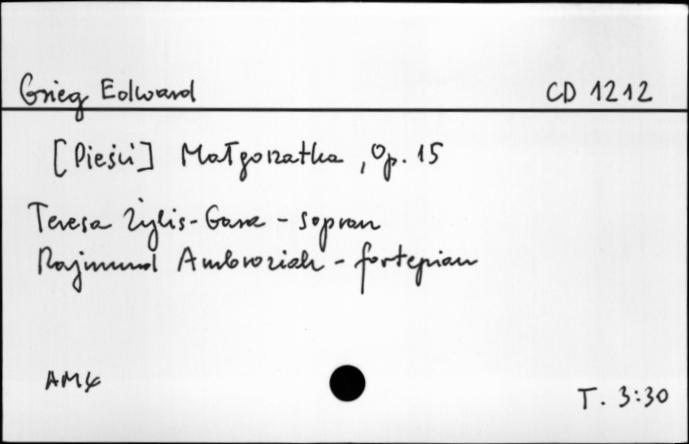 Grieg Edward CD 1212
[Pieśni] Małgorzatka, Op. 15
Teresa Żylis-Gara - sopran
Rajmund Ambroziak - fortepian
AMŁ
T. 3:30